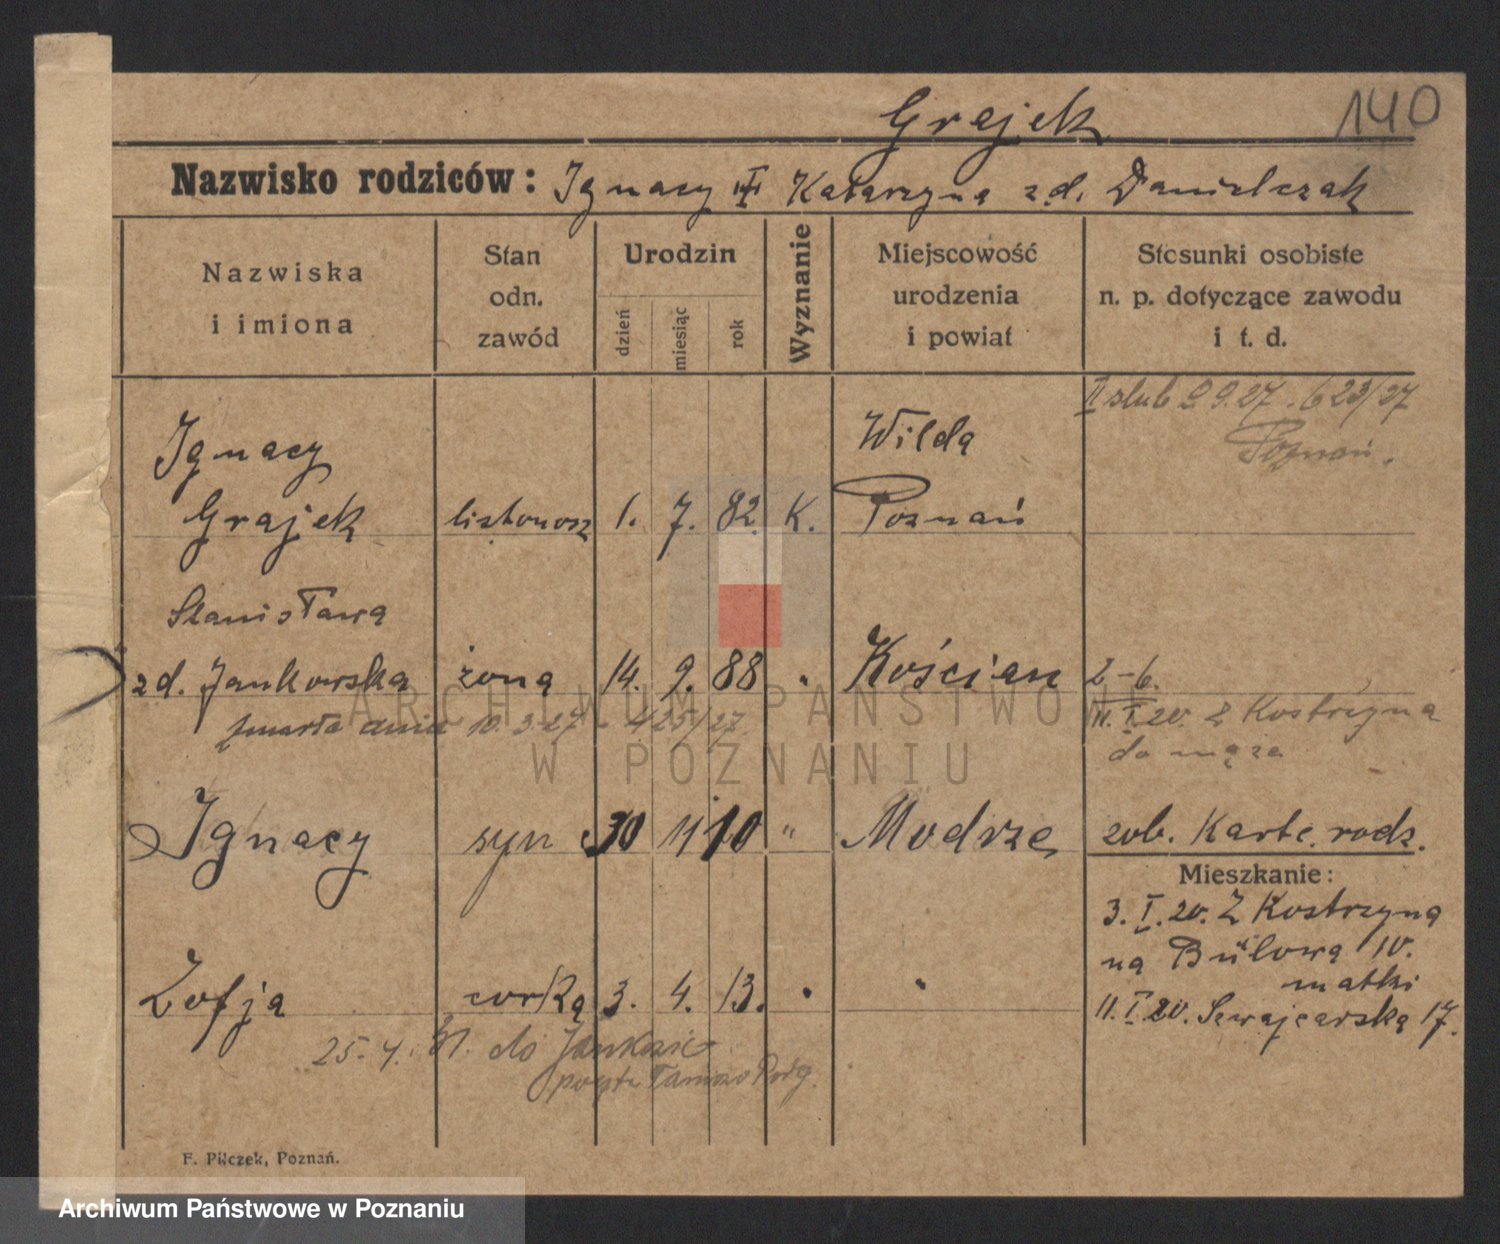 Grajek
140
Nazwisko rodziców: Ignacy i Katarzyna z d. Danielczak
Nazwiska
i imiona
Stan
odn.
zawód
Urodzin
dzień
miesiąc
rok
Wyznanie
Miejscowość
urodzenia
i powiat
Stosunki osobiste
n. p. dotyczące zawodu
i t. d.
II ślub 9.27. 623/27
Poznań.
Ignacy
Wilda
Grajek listonosz 1. 7. 82. K. Poznań
Stanisława
z d. Jankowska żona 14. 9. 88 " Kościan 2-6.
zmarła dnia 10.3.27 - 425/27. 11.I.20. Z Kostrzyna
do męża
Ignacy syn 30 11 10 " Modrze zob. Kartę rodz.
Mieszkanie:
3.I.20. Z Kostrzyna
na Bülowa 10.
matki
Zofja corka 3. 4. 13. " "
11.I.20. Szwajcarska 17.
25.4. do
F. Pilczek, Poznań.
ARCHIWUM PAŃSTWOWE
W POZNANIU
Archiwum Państwowe w Poznaniu